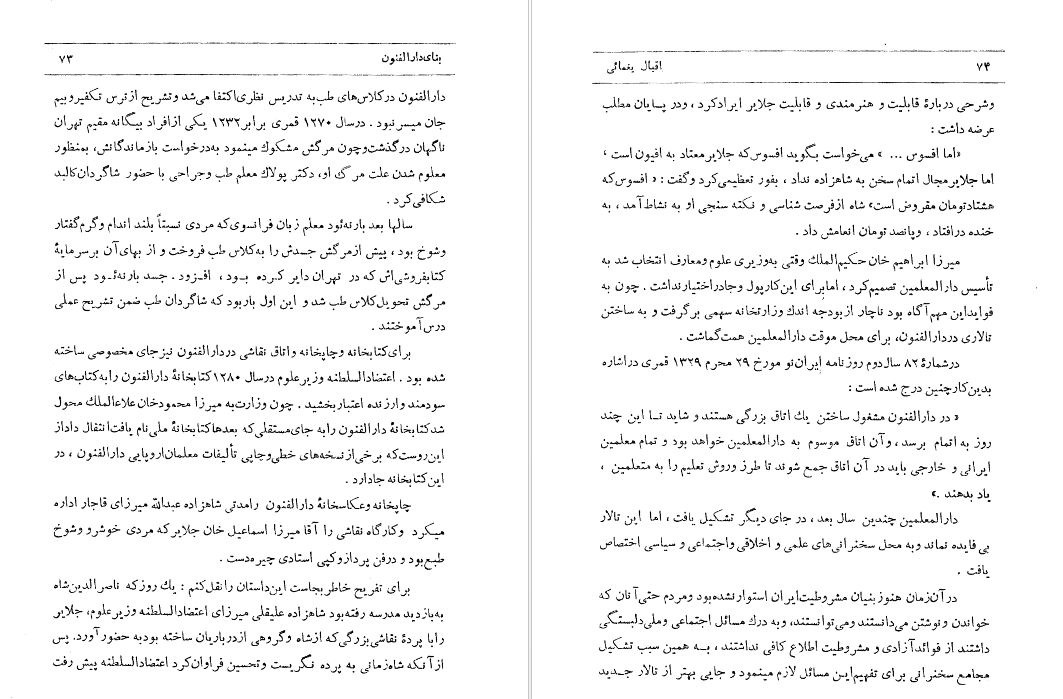 بنای دارالفنون ۷۳
دارالفنون در کلاس‌های طب به تدریس نظری اکتفا می‌شد و تشریح از ترس تکفیر و بیم
جان میسر نبود . در سال ۱۲۷۰ قمری برابر ۱۲۳۲ یکی از افراد بیگانه مقیم تهران
ناگهان درگذشت و چون مرگش مشکوك مینمود به درخواست بازماندگانش، بمنظور
معلوم شدن علت مرگ او، دکتر پولاك معلم طب و جراحی با حضور شاگردان کالبد
شکافی کرد .
سالها بعد بارنه‌ئود معلم زبان فرانسوی که مردی نسبتاً بلند اندام و گرم گفتار
و شوخ بود ، پیش از مرگش جسدش را به کلاس طب فروخت و از بهای آن بر سرمایۀ
کتابفروشی‌اش که در تهران دایر کرده بود ، افزود . جسد بارنه‌ئود پس از
مرگش تحویل کلاس طب شد و این اول بار بود که شاگردان طب ضمن تشریح عملی
درس آموختند .
برای کتابخانه و چاپخانه و اتاق نقاشی در دارالفنون نیز جای مخصوصی ساخته
شده بود . اعتضادالسلطنه وزیر علوم در سال ۱۲۸۰ کتابخانۀ دارالفنون را به کتاب‌های
سودمند و ارزنده اعتبار بخشید . چون وزارت به میرزا محمودخان علاءالملك محول
شد کتابخانۀ دارالفنون را به جای مستقلی که بعدها کتابخانۀ ملی نام یافت انتقال داد از
این روست که برخی از نسخه‌های خطی و چاپی تألیفات معلمان اروپایی دارالفنون ، در
این کتابخانه جا دارد .
چاپخانه و عکاسخانۀ دارالفنون را مدتی شاهزاده عبدالله میرزای قاجار اداره
میکرد و کارگاه نقاشی را آقا میرزا اسماعیل خان جلایر که مردی خوشرو و شوخ
طبع بود و در فن پرداز و کپی استادی چیره‌دست .
برای تفریح خاطر بجاست این داستان را نقل کنم : یك روز که ناصرالدین‌شاه
به بازدید مدرسه رفته بود شاهزاده علیقلی میرزای اعتضادالسلطنه وزیر علوم، جلایر
را با پردۀ نقاشی بزرگی که از شاه و گروهی از درباریان ساخته بود به حضور آورد. پس
از آنکه شاه زمانی به پرده نگریست و تحسین فراوان کرد اعتضادالسلطنه پیش رفت
۷۴ اقبال یغمائی
و شرحی دربارۀ قابلیت و هنرمندی و قابلیت جلایر ایراد کرد ، و در پایان مطلب
عرضه داشت :
«اما افسوس ... » می‌خواست بگوید افسوس که جلایر معتاد به افیون است ،
اما جلایر مجال اتمام سخن به شاهزاده نداد ، بفور تعظیمی کرد و گفت : « افسوس که
هشتاد تومان مقروض است» شاه از فرصت شناسی و نکته سنجی او به نشاط آمد ، به
خنده درافتاد ، و پانصد تومان انعامش داد .
میرزا ابراهیم خان حکیم‌الملك وقتی به وزیری علوم و معارف انتخاب شد به
تأسیس دارالمعلمین تصمیم کرد ، اما برای این کار پول و جا در اختیار نداشت . چون به
فواید این مهم آگاه بود ناچار از بودجه اندك وزارتخانه سهمی برگرفت و به ساختن
تالاری در دارالفنون، برای محل موقت دارالمعلمین همت گماشت .
در شمارۀ ۸۲ سال دوم روزنامه ایران نو مورخ ۲۹ محرم ۱۳۲۹ قمری در اشاره
بدین کار چنین درج شده است :
« در دارالفنون مشغول ساختن یك اتاق بزرگی هستند و شاید تا این چند
روز به اتمام برسد ، و آن اتاق موسوم به دارالمعلمین خواهد بود و تمام معلمین
ایرانی و خارجی باید در آن اتاق جمع شوند تا طرز و روش تعلیم را به متعلمین ،
یاد بدهند .»
دارالمعلمین چندین سال بعد ، در جای دیگر تشکیل یافت ، اما این تالار
بی فایده نماند و به محل سخنرانی‌های علمی و اخلاقی و اجتماعی و سیاسی اختصاص
یافت .
در آن زمان هنوز بنیان مشروطیت ایران استوار نشده بود و مردم حتی آنان که
خواندن و نوشتن می‌دانستند و می‌توانستند، و به درك مسائل اجتماعی و ملی دلبستگی
داشتند از فوائد آزادی و مشروطیت اطلاع کافی نداشتند ، به همین سبب تشکیل
مجامع سخنرانی برای تفهیم این مسائل لازم مینمود و جایی بهتر از تالار جدید